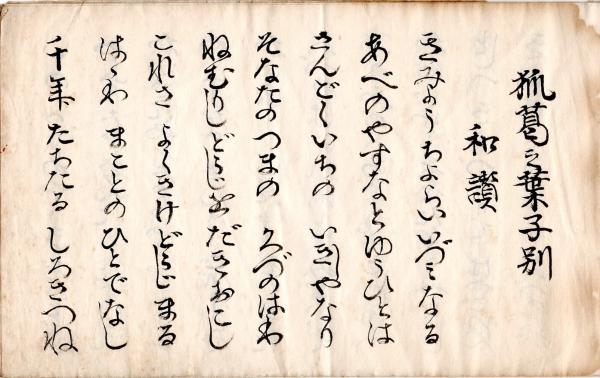 狐葛之葉子別
和讃
きみょうちよらいいづミなる
あべのやすなとゆうひとは
さんどくいちの いきしやなり
そなたのつまの くづのはわ
ねむりしどうじを だきおこし
これさ よくきけどうじまる
はゝわ まことのひとでなし
千年 たちたる しろきつね